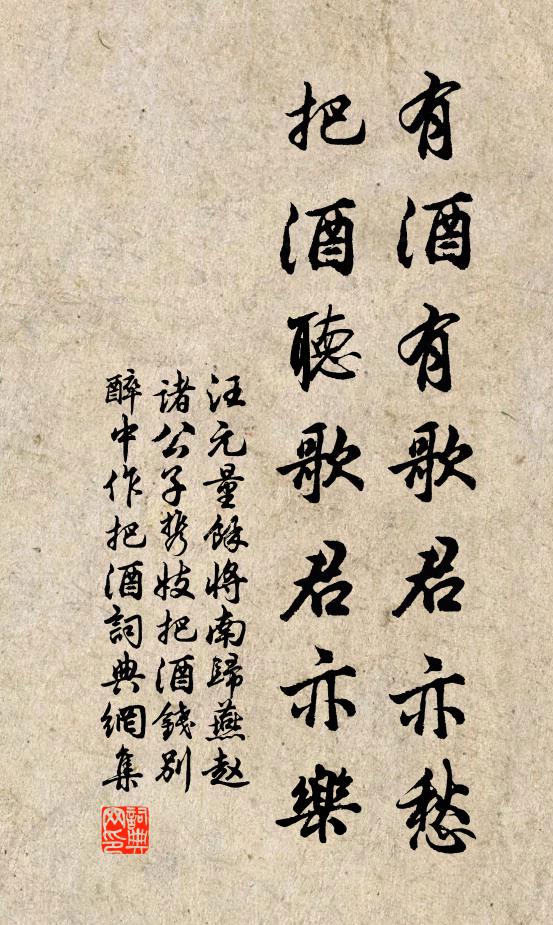 有酒有歌君亦愁
把酒聽歌君亦樂
汪元量餘將南歸燕赵
諸公子携妓把酒錢别
醉中作把酒詞典網集
詞典网印